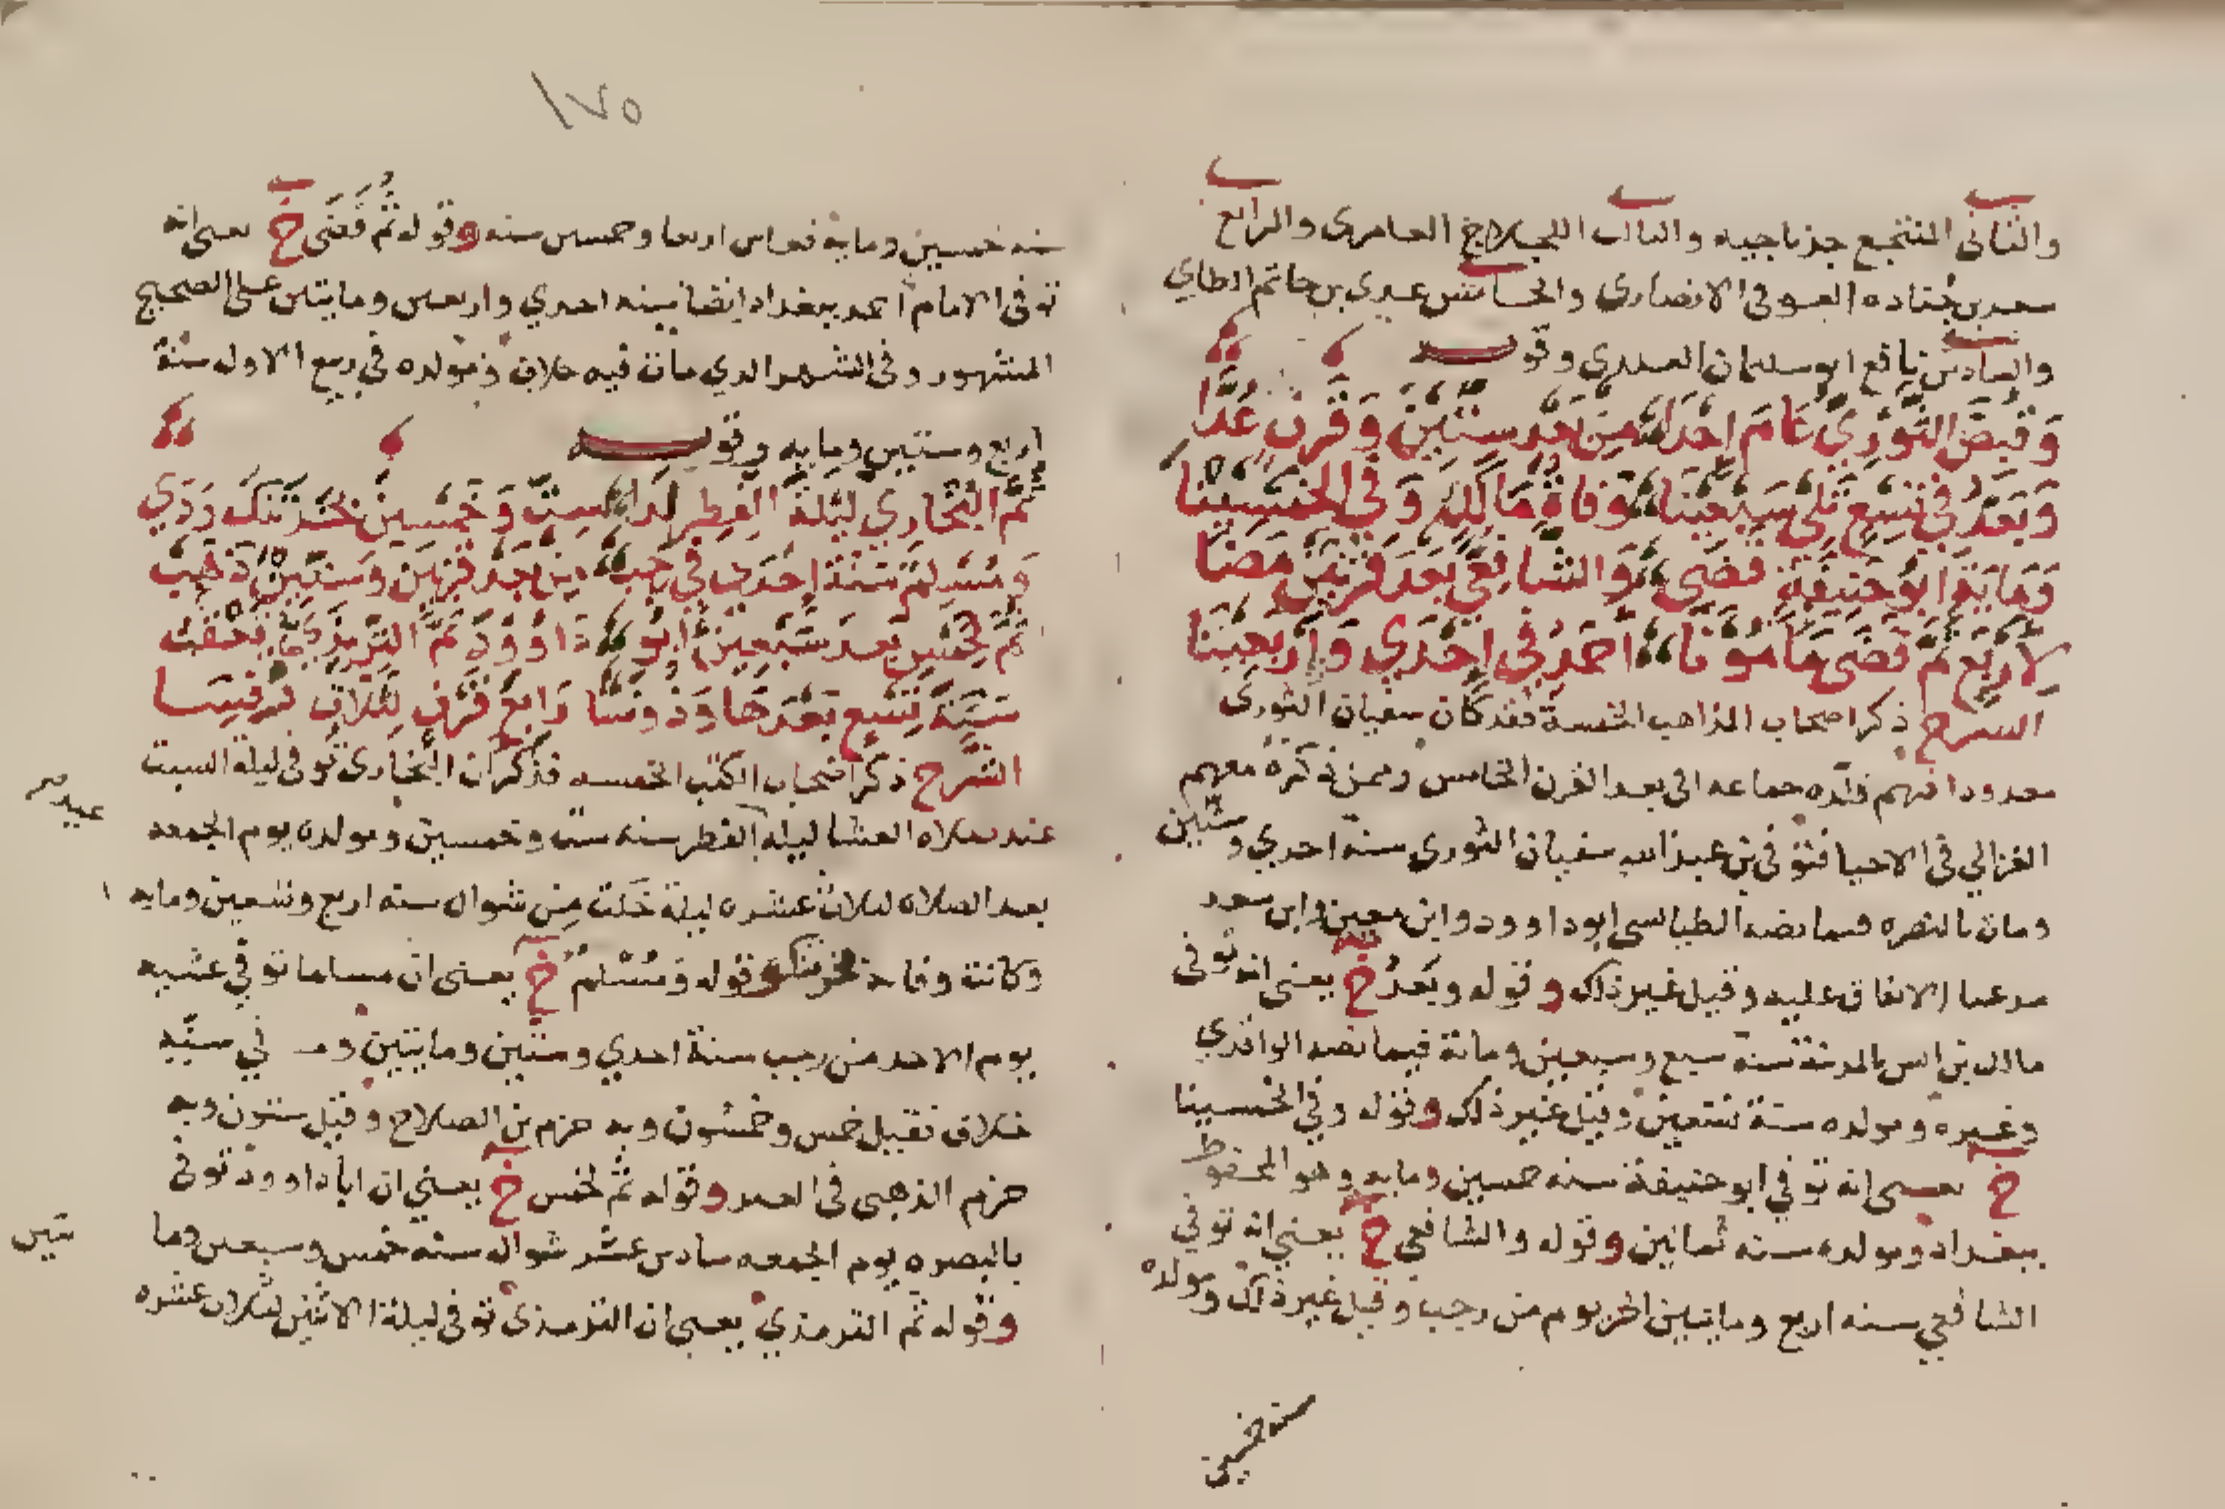 والثاني المنتجع جد ناجيه والثالث اللجلاج العامري والرابع
سعد بن جناده العوفي الانصاري والخامس عدي بن حاتم الطاي
والسادس نافع ابو سليمان العبدي وقوله
وَقُبِضَ الثَّوْرِيُّ عَامَ إحْدَى مِنْ بَعْدِ سِتِّيْنَ وَقَرْنٍ عُدَّا
وَبَعْدُ فِي تِسْعٍ تَلِي سَبْعِيْنَا وَفَاةُ مَالِكٍ وَفِي الْخَمْسِيْنَا
وَمَايَةٍ ابُو حَنِيْفَةٍ قَضَى وَالشَّافِعِيُّ بَعْدَ قَرْنَيْنِ مَضَا
لِاَرْبَعٍ ثُمَّ قَضَى مَامُوْنَا اَحْمَدُ فِي إحْدَي وَاَرْبَعِيْنَا
الشرح ذكر اصحاب المذاهب الخمسة فقد كان سفيان الثوري
معدودا فيهم قلده جماعه الى بعد القرن الخامس وممن ذكره معهم
الغزالي في الاحيا فتوفي بن عبد الله سفيان الثوري سنة احدي وستين
ومات بالبصره فيما نصه الطيالسي ابو داوود وابن معين وابن سعد
مدعيا الاتفاق عليه وقيل غير ذلك وقوله وبَعْدُ خ يعني انه توفى
مالك بن انس بالمدينة سنة سبع وسبعين ومائة فيما نصه الواقدي
وغيره ومولده سنة تسعين وقيل غير ذلك وقوله وفي الخمسينا
خ يعني انه توفي ابو حنيفة سنه خمسين ومايه وهو المحفوظ
ببغداد ومولده سنه ثمانين وقوله والشافعي خ يعني انه توفي
الشافعي سنه اربع ومايتين اخر يوم من رجب وقيل غير ذلك ومولده
سنه خمسين
١٧٥
سنه خمسين ومايه فعاش اربعا وخمسين سنه وقوله ثُم قَضَى خ يعني انه
توفى الامام احمد ببغداد ايضا سنه احدي واربعين ومايتين على الصحيح
المشهور وفي الشهر الذي مات فيه خلاف ومولده في ربيع الاول سنة
اربع وستين ومايه وقوله
ثُمَّ الْبُخَارِي لَيْلَةَ الْفِطْرِ لَدَى سِتٍّ وَخَمْسِيْنَ بِخَرْتَنْكَ رَدَي
وَمُسْلِمٌ سَنَةَ إحْدَى فِي رَجَبْ مِنْ بَعْدِ قَرْنَيْنِ وَسِتِّيْنَ ذَهَبْ
ثُمَّ لِخَمْسٍ بَعْدَ سَبْعِيْنَ اَبُو دَاوُوْدَ ثُمَّ التِّرْمِذِيُّ يَعْقُبُ
سَنَةَ تِسْعٍ بَعْدَهَا وَذُو نَسَا رَابِعَ قَرْنٍ لِثَلَاثٍ رُفِسَا
الشرح ذكر اصحاب الكتب الخمسه فذكر ان البخاري توفى ليلة السبت
عند صلاه العشا ليلة الفطر سنه ست وخمسين ومولده يوم الجمعه
بعد الصلاه لثلاث عشره ليلة خلت من شوال سنه اربع وتسعين ومايه
وكانت وفاته بخرتنك وقوله ومُسْلمٌ خ يعني ان مسلما توفي عشيه
يوم الاحد من رجب سنة احدي وستين ومايتين وفي سنه
خلاف فقيل خمس وخمسون وبه جزم بن الصلاح وقيل ستون وبه
جزم الذهبي في العبر وقوله ثم لخمس خ يعني ان ابا داوود توفى
بالبصره يوم الجمعه سادس عشر شوال سنه خمس وسبعين وما
يتين
وقوله ثم الترمذي يعني ان الترمذي توفى ليلة الاثنين لثلاث عشره